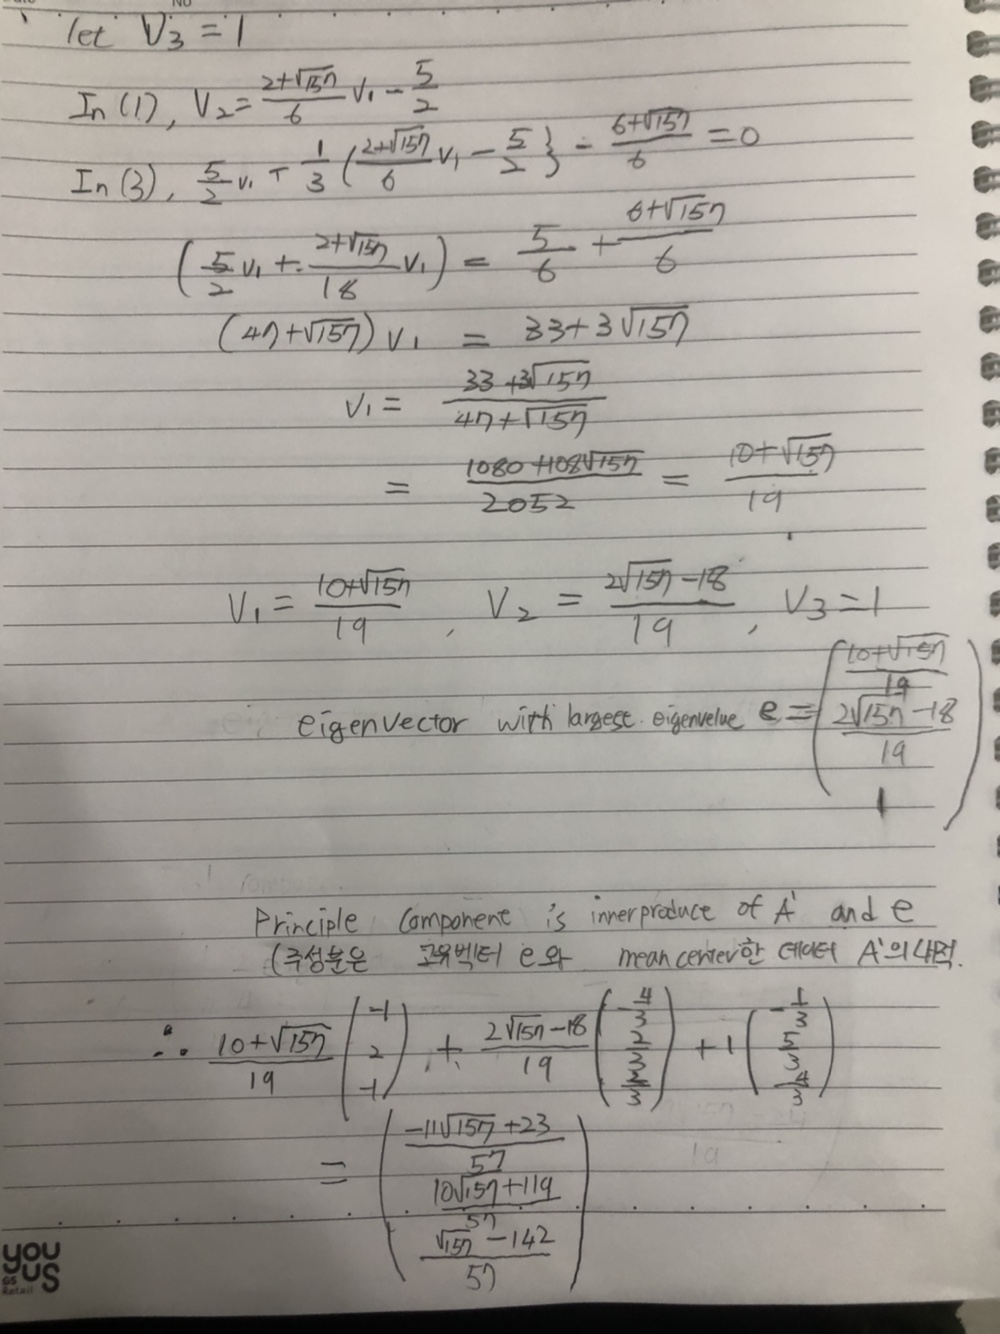 No
let V₃ = 1
In (1), V₂ = (2+√157)/6 V₁ - 5/2
In (3), 5/2 V₁ + 1/3 {(2+√157)/6 V₁ - 5/2} - (6+√157)/6 = 0
(5/2 V₁ + (2+√157)/18 V₁) = 5/6 + (6+√157)/6
(47+√157) V₁ = 33+3√157
V₁ = (33+3√157)/(47+√157)
= (1080+108√157)/2052 = (10+√157)/19
V₁ = (10+√157)/19, V₂ = (2√157-18)/19, V₃ = 1
eigenvector with largest eigenvelue e = ((10+√157)/19, (2√157-18)/19, 1)
Principle component is innerproduce of A' and e
(주성분은 고유벡터 e와 mean center한 데이터 A'의 내적.
∴ (10+√157)/19 (-1, 2, -1) + (2√157-18)/19 (-4/3, 2/3, 2/3) + 1 (-1/3, 5/3, -4/3)
= ((-11√157+23)/57, (10√157+119)/57, (√157-142)/57)
YOU
US
GS
Retail